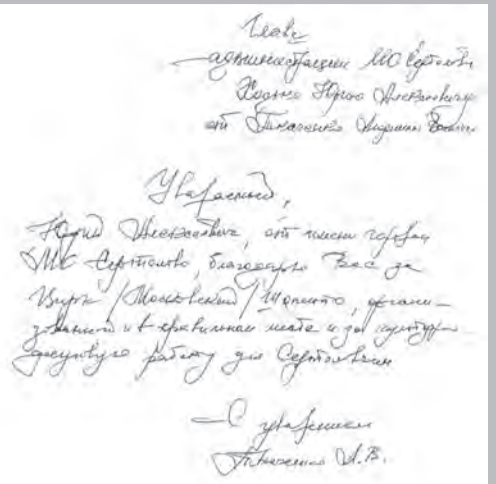 Главе
администрации МО Сертолово
Ходько Юрию Алексеевичу
от Ткаченко
Уважаемый,
Юрий Алексеевич, от имени горожан
МО Сертолово, благодарю Вас за
Цирк /Московский/ Шапито, органи-
зованный в и за культурно-
досуговую работу для Сертоловчан
С уважением
Ткаченко А.В.